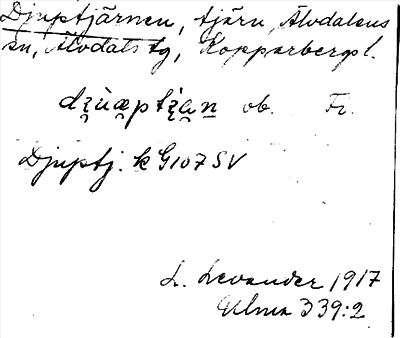 Djuptjärnen, tjärn, Älvdalens
sn, Älvdals tg, Kopparbergs l.
ob. Fr.
Djuptj. k G107 SV
L. Levander 1917
Ulma 339:2